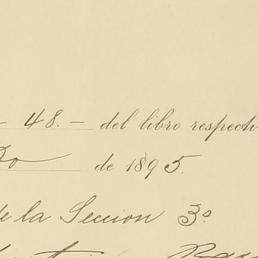 48. — del libro respecti
de 1895.
de la Seccion 3º